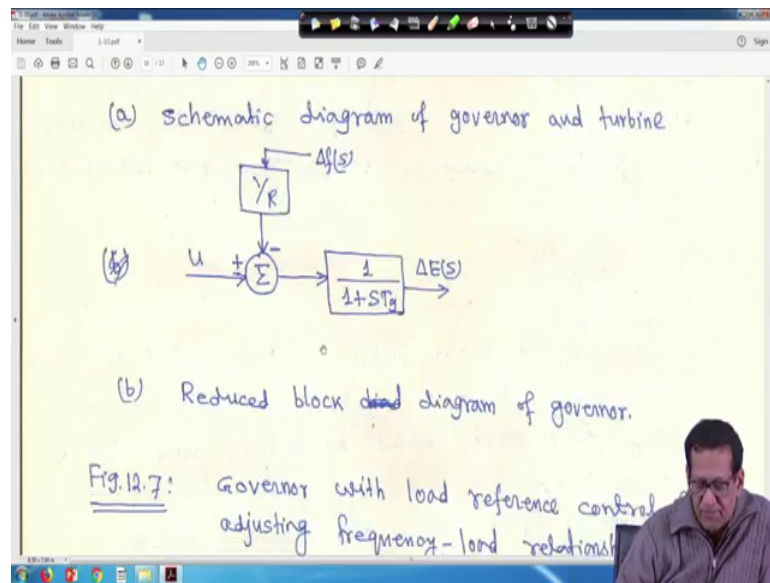 1-10.pdf - Adobe Acrobat Reader DC
File Edit View Window Help
Home Tools 1-10.pdf × Sign
(a) schematic diagram of governor and turbine
Δf(s)
1/R
(b) U + − Σ 1/1+STg ΔE(s)
(b) Reduced block diagram of governor.
Fig.12.7: Governor with load reference control
adjusting frequency-load